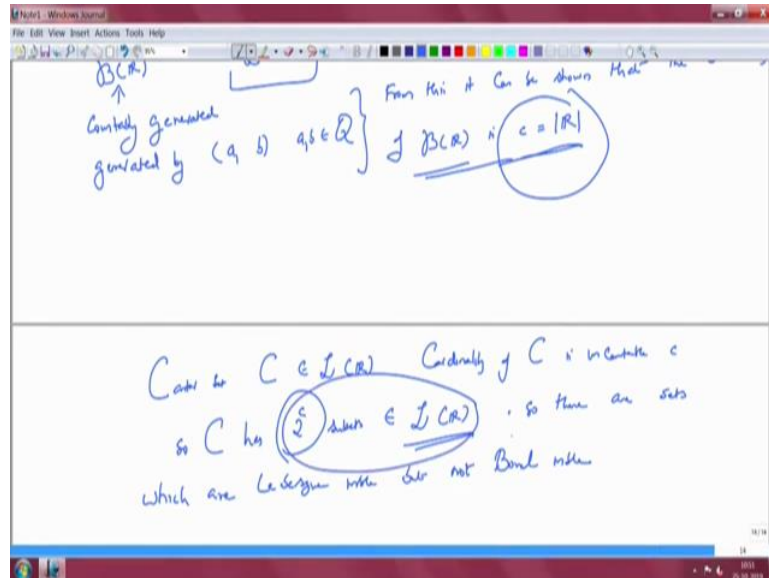 Note1 - Windows Journal
File Edit View Insert Actions Tools Help
B(R)
Countably generated
generated by (a, b) a, b ∈ Q } From this it can be shown that the
of B(R) is c = |R|
Cantor set C ∈ L(R) Cardinality of C is uncountable c
so C has 2^c subsets ∈ L(R). so there are sets
which are Lebesgue mble but not Borel mble